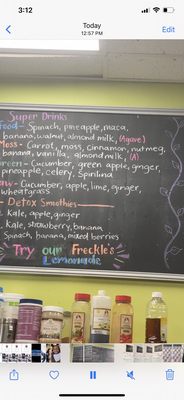 3:12
Today
12:57 PM
Edit
Super Drinks
Food- Spinach, pineapple, maca,
banana, walnut, almond milk, (Agave)
Moss- Carrot, moss, cinnamon, nutmeg,
banana, vanilla, almond milk, (A)
reen- Cucumber, green apple, ginger,
pineapple, celery, Spirilina
aw- Cucumber, apple, lime, ginger,
wheatgrass
- Detox Smoothies
. Kale, apple, ginger
. Kale, strawberry, banana
Spinach, banana, mixed berries
Try our Freckle's
Lemonade